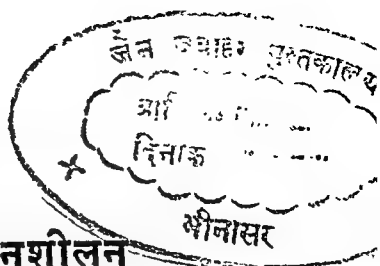 जैन जवाहर पुस्तकालय
प्राप्ति
दिनांक
भीनासर
नुशीलन